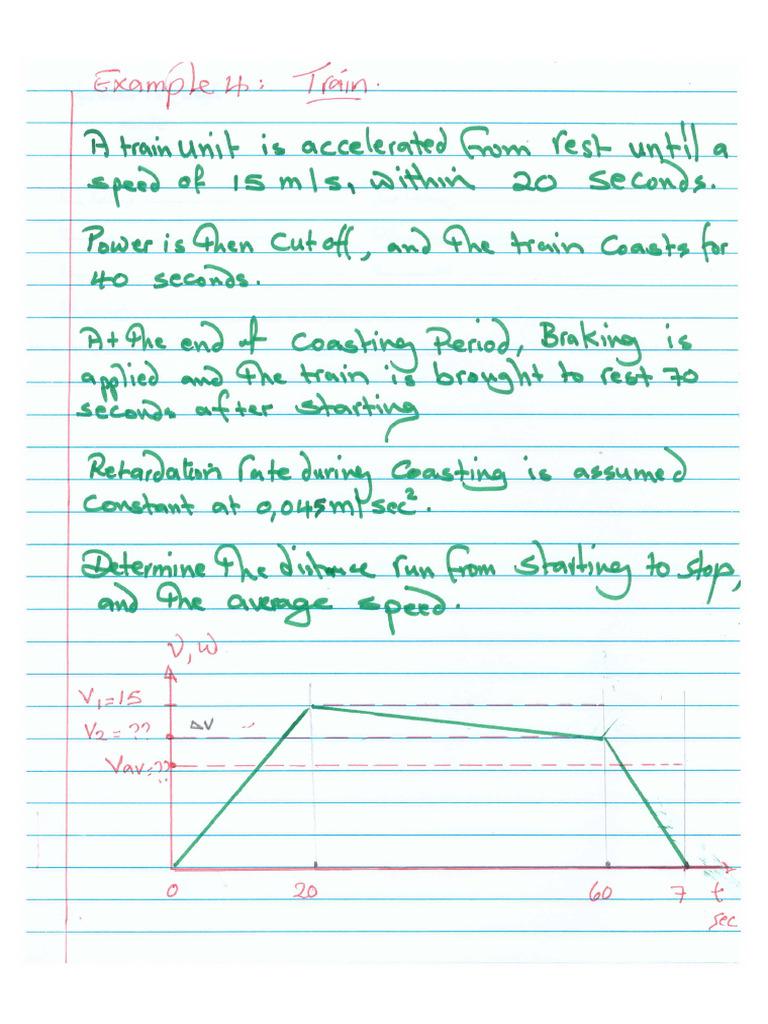 Example 4: Train.
A train unit is accelerated from rest until a
speed of 15 m/s, within 20 seconds.
Power is then cut off, and the train coasts for
40 seconds.
At the end of coasting Period, Braking is
applied and the train is brought to rest 70
seconds after starting
Retardation rate during coasting is assumed
constant at 0,045 m/sec².
Determine the distance run from starting to stop,
and the average speed.
V, w
V1=15
V2=??
ΔV
Vav=??
0 20 60 7 t
sec